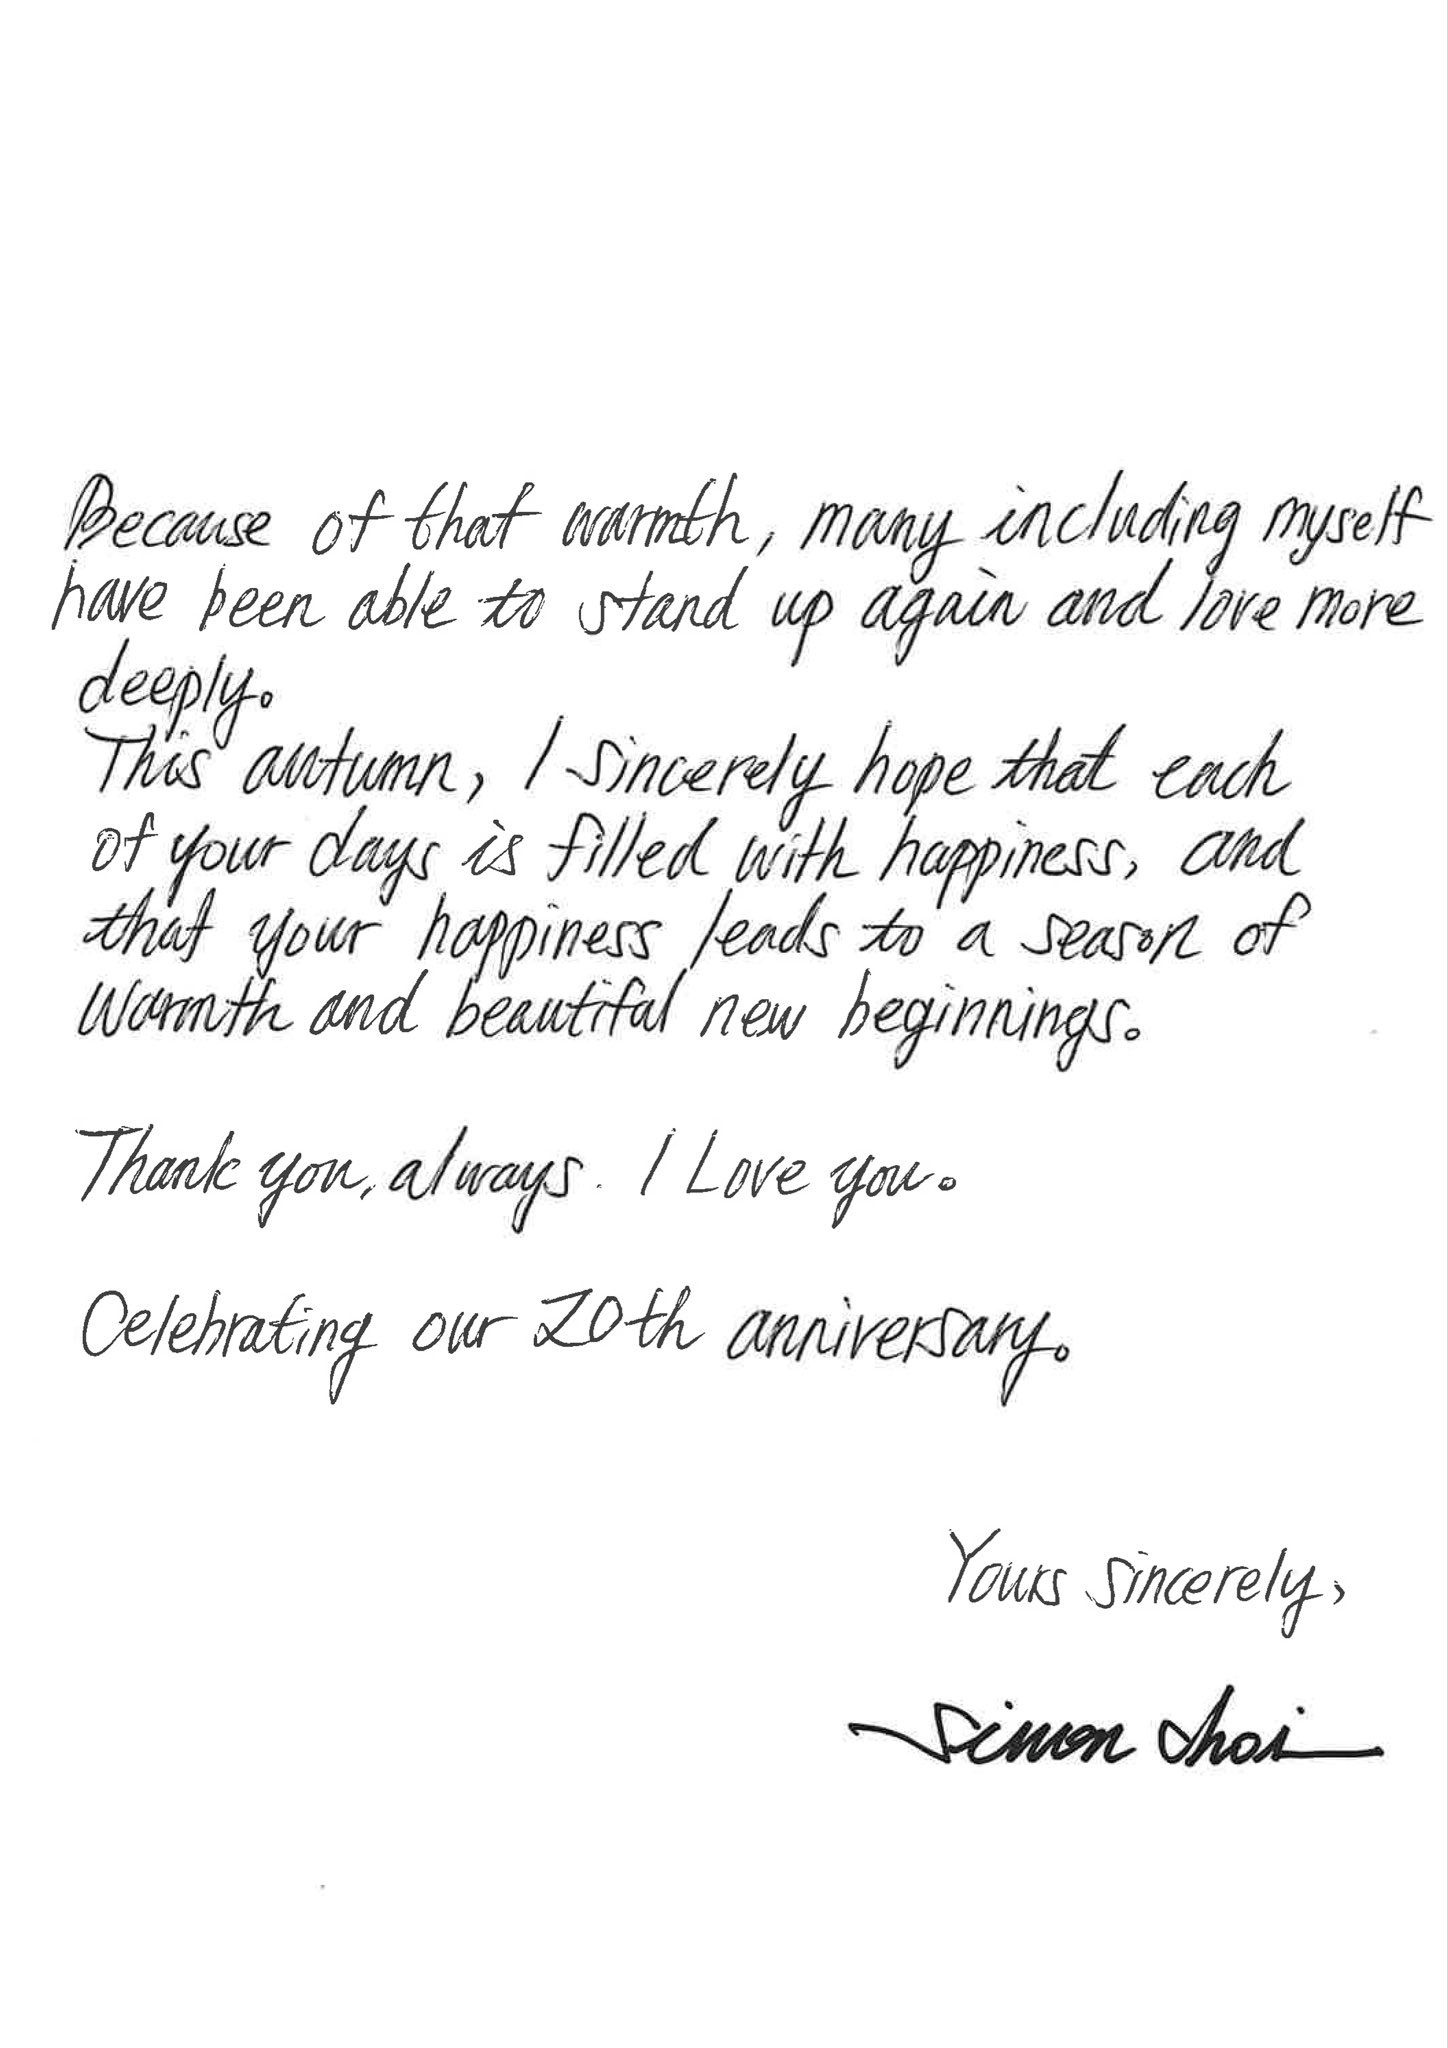 Because of that warmth, many including myself
have been able to stand up again and love more
deeply.
This autumn, I sincerely hope that each
of your days is filled with happiness, and
that your happiness leads to a season of
warmth and beautiful new beginnings.
Thank you, always. I Love you.
Celebrating our 20th anniversary.
Yours sincerely,
Simon Choi